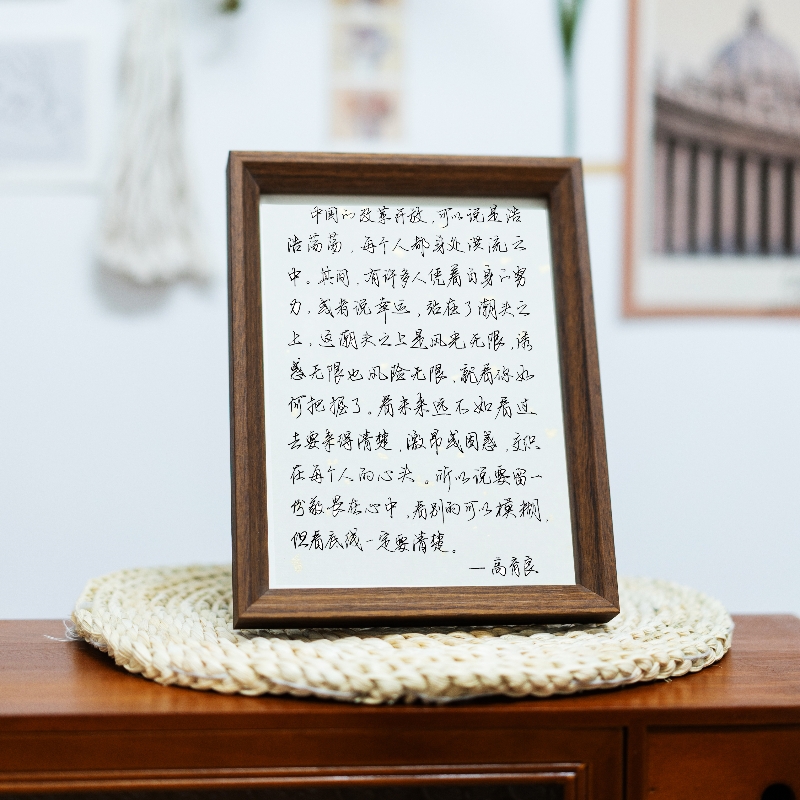 中国的改革开放，可以说是浩
浩荡荡，每个人都身处洪流之
中。其间，有许多人凭着自身的努
力，或者说幸运，站在了潮头之
上，这潮头之上是风光无限，诱
惑无限也风险无限，就看你如
何把握了。看未来远不如看过
去要来得清楚，激昂或困惑，交织
在每个人的心头。所以说要留一
份敬畏在心中，看别的可以模糊，
但看底线一定要清楚。
—高育良